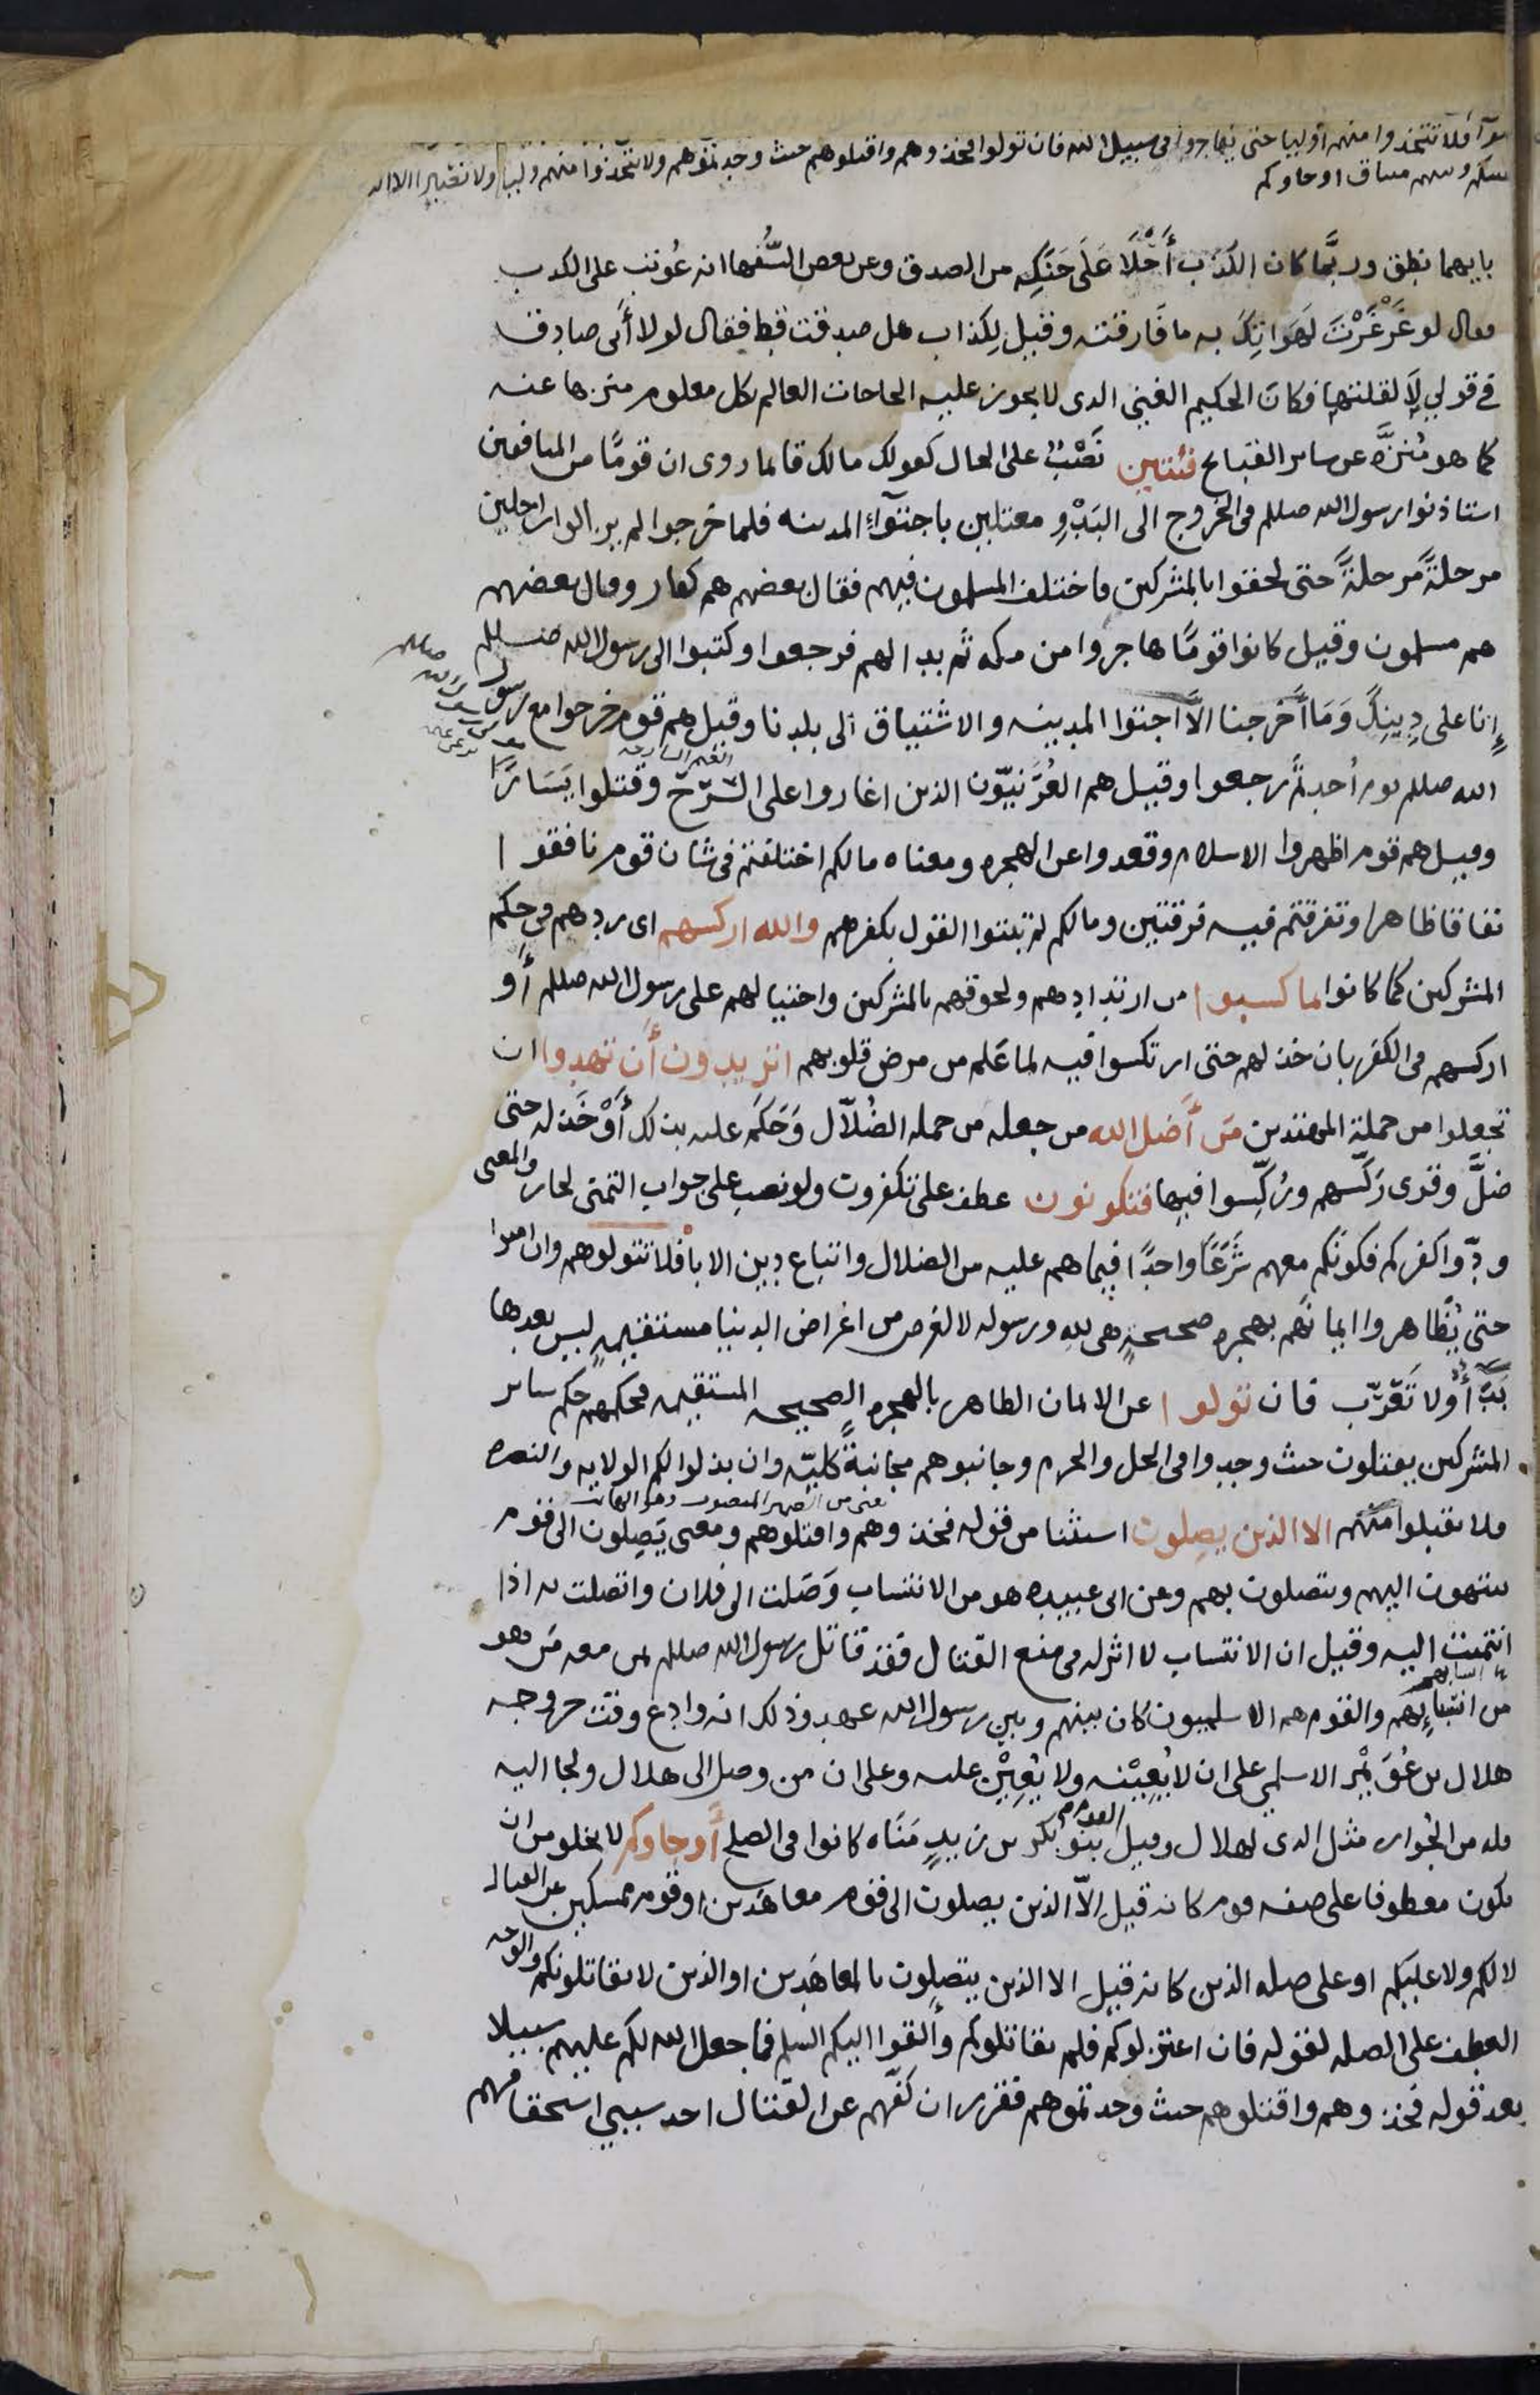 سوآ فلا تتخذوا منهم أوليا حتى يهاجروا في سبيل الله فان تولوا فخذوهم واقتلوهم حيث وجدتموهم ولا تتخذوا منهم وليا ولا نصيرا الا الد
بينكم وبينهم ميثاق او جاوكم
بايهما نطق وربَّما كان الكذب أَحْلَا عَلَى حَنَكِه من الصدق وعن بعض السُّفها انه عُوتب على الكذب
فقال لو غَرْغَرْتَ لَهَوَاتِكَ به ما فَارقته وقيل لِكذاب هل صدقت قط فقال لولا أنى صادق
في قولي لَا لقلتها فكان الحكيم الغني الذى لا يجوز عليه الحاجات العالم بكل معلوم منزها عنه
كما هو مُنزَّه عن ساير القبايح فئتين نَصْبٌ على الحال كقولك مالك قايما روى ان قومًا من المنافقين
استاذنوا رسول الله صللم فى الخروج الى البَدْوِ معتلين باجتوآءِ المدينه فلما خرجوا لم يزالوا راحلين
مرحلةً مرحلةً حتى لحقوا بالمشركين فاختلف المسلمون فيهم فقال بعضهم هم كفار وقال بعضهم
هم مسلمون وقيل كانوا قومًا هاجروا من مكه ثم بدا لهم فرجعوا وكتبوا الى رسول الله صللم
إنا على دِينِكَ وَمَا أَخرجنا الَّا اجتوا المدينه والاشتياق الى بلدنا وقيل هم قوم خرجوا مع رسول
الله صللم يوم أُحدٍ ثم رجعوا وقيل هم العُرَنيّون الذين اغاروا على السَّرْح وقتلوا يَسَارًا
وقيل هم قوم اظهروا الاسلام وقعدوا عن الهجره ومعناه مالكم اختلفتم فى شان قوم نافقوا
نفاقا ظاهرا وتفرقتم فيه فرقتين ومالكم لم تبتوا القول بكفرهم والله اركسهم اى ردهم فى حكم
المشركين كما كانوا بما كسبوا من ارتدادهم ولحوقهم بالمشركين واحتيالهم على رسول الله صللم أو
اركسهم فى الكفر بان خذلهم حتى ارتكسوا فيه لما عَلم من مرض قلوبهم اتريدون أَن تهدوا ان
تجعلوا من جملة المهتدين مَن أَضل الله من جعله من جمله الضُلَّال وَحَكَم عليه بذلك أَوْ خَذله حتى
ضلَّ وقرى رَكَّسهم ورُكِّسوا فيها فتكونون عطف على تكفرون ولو نصب على جواب التمنى لجاز والمعنى
ودّوا كفركم فكونكم معهم شَرَعًا واحدًا فيما هم عليه من الضلال واتباع دين الابا فلا تتولوهم وان امنوا
حتى يُظَاهروا ايمانَهم بهجره صحيحةٍ هى لله ورسوله لا لغرض من اغراض الدنيا مستقيمةٍ ليس بعدها
بَدَأٌ ولا تَعَرُّب فان تولوا عن الايمان الظاهر بالهجره الصحيحه المستقيمه فحكمهم حكم ساير
المشركين يقتلون حيث وجدوا فى الحل والحرم وجانبوهم مجانبةً كليّه وان بذلوا لكم الولايه والنصره
فلا تقبلوا منهم الا الذين يصلون استثنا من قوله فخذوهم واقتلوهم ومعنى يَصِلون الى قوم
ينتهون اليهم ويتصلون بهم وعن ابى عبيده هو من الانتساب وَصَلت الى فلان واتصلت به اذا
انتميت اليه وقيل ان الانتساب لا اثر له فى منع القتال فقد قاتل رسول الله صللم بمن معه مَن هو
من انسابهم والقوم هم الاسلميون كان بينهم وبين رسول الله عهد وذلك انه وادع وقت خروجه
هلال بن عُوَيْمر الاسلمي على ان لا يُعِيْنه ولا يُعِيْن عليه وعلى ان من وصل الى هلال ولجا اليه
فله من الجُوار مثل الذى لهلال وقيل القوم بنو بكر بن زيدِ مَنَاه كانوا فى الصلح أَو جاوكم لا يخلو من ان
يكون معطوفا على صفه قوم كانه قيل الّا الذين يصلون الى قوم معاهَدين او قوم ممسكين عن القتال
لا لكم ولا عليكم او على صله الذين كانه قيل الا الذين يتصلون بالمعاهَدين او الذين لا يقاتلونكم والوجه
العطف على الصله لقوله فان اعتزلوكم فلم يقاتلوكم وأَلقوا اليكم السلم فما جعل الله لكم عليهم سبيلا
بعد قوله فخذوهم واقتلوهم حيث وجدتموهم فقرر ان كفّهم عن القتال احد سببي استحقاقهم